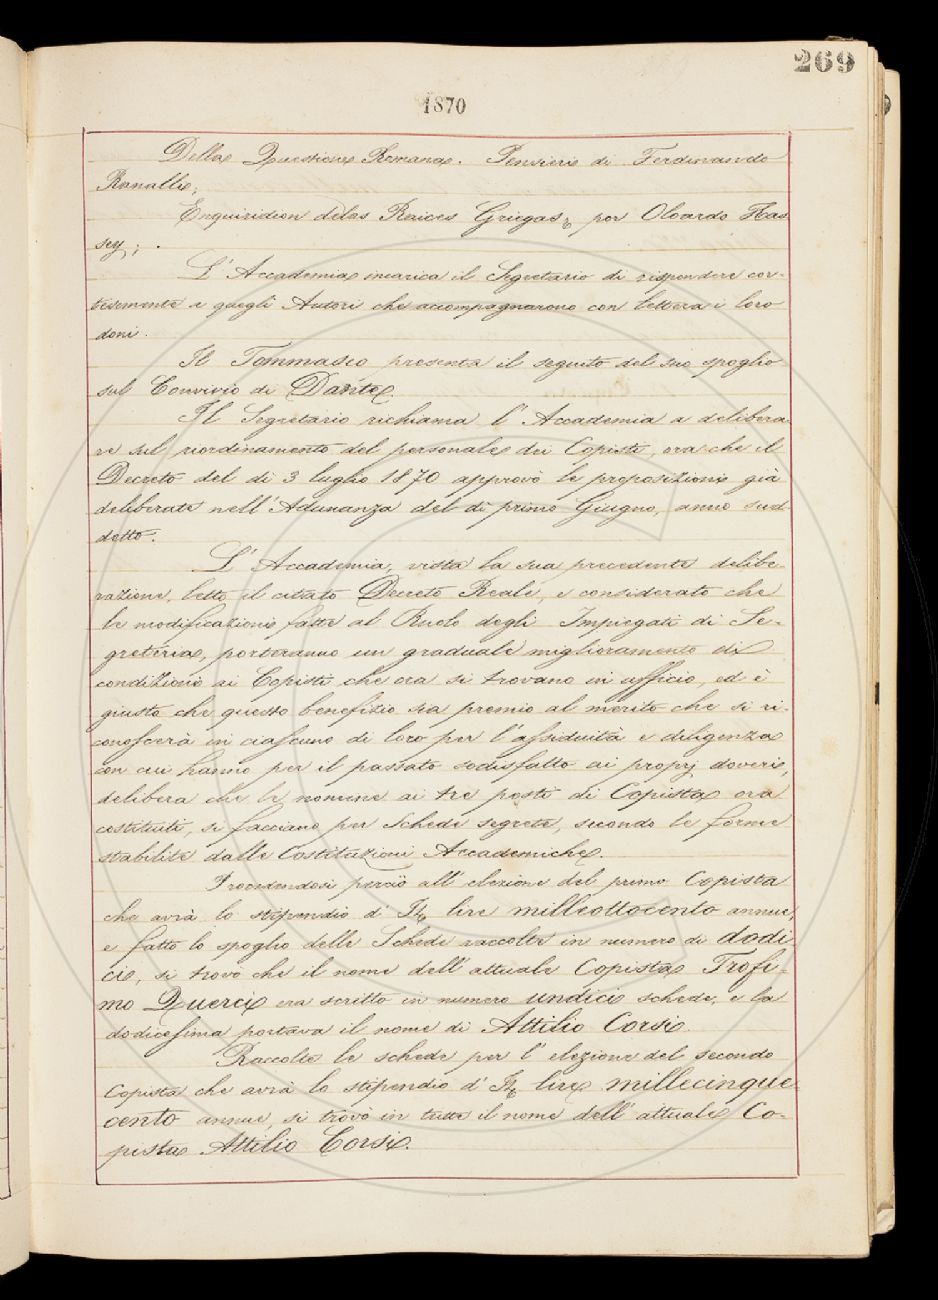 269
1870
Della Questione Romana. Pensieri di Ferdinando
Ranalli;
Enquiridion delas Raices Griegas, por Oloardo Has
sey; .
L'Accademia incarica il Segretario di rispondere cor-
tesemente a quegli Autori che accompagnarono con lettera i loro
doni.
Il Tommaseo presenta il seguito del suo spoglio
sul Convivio di Dante.
Il Segretario richiama l'Accademia a delibera-
re sul riordinamento del personale dei Copisti, ora che il
Decreto del di 3 luglio 1870 approvò le proposizioni già
deliberate nell'Adunanza del di primo Giugno, anno sud-
detto.
L'Accademia, vista la sua precedente delibe-
razione, letto il citato Decreto Reale, e considerato che
le modificazioni fatte al Ruolo degli Impiegati di Se-
greteria, porteranno un graduale miglioramento di
condizioni ai Copisti che ora si trovano in ufficio, ed è
giusto che questo benefizio sia premio al merito che si ri-
conoscerà in ciascuno di loro per l'assiduità e diligenza
con cui hanno per il passato sodisfatto ai proprj doveri,
delibera che le nomine ai tre posti di Copista ora
costituiti, si facciano per Schede segrete, secondo le forme
stabilite dalle Costituzioni Accademiche.
Procedendosi perciò all'elezione del primo Copista
che avrà lo stipendio d'It. lire milleottocento annue,
e fatto lo spoglio delle Schede raccolte in numero di dodi
ci, si trovò che il nome dell'attuale Copista Trofi-
mo Querci era scritto in numero undici schede, e la
dodicesima portava il nome di Attilio Corsi.
Raccolte le schede per l'elezione del secondo
Copista che avrà lo stipendio d'It. lire millecinque-
cento annue, si trovò in tutte il nome dell'attuale Co-
pista Attilio Corsi.